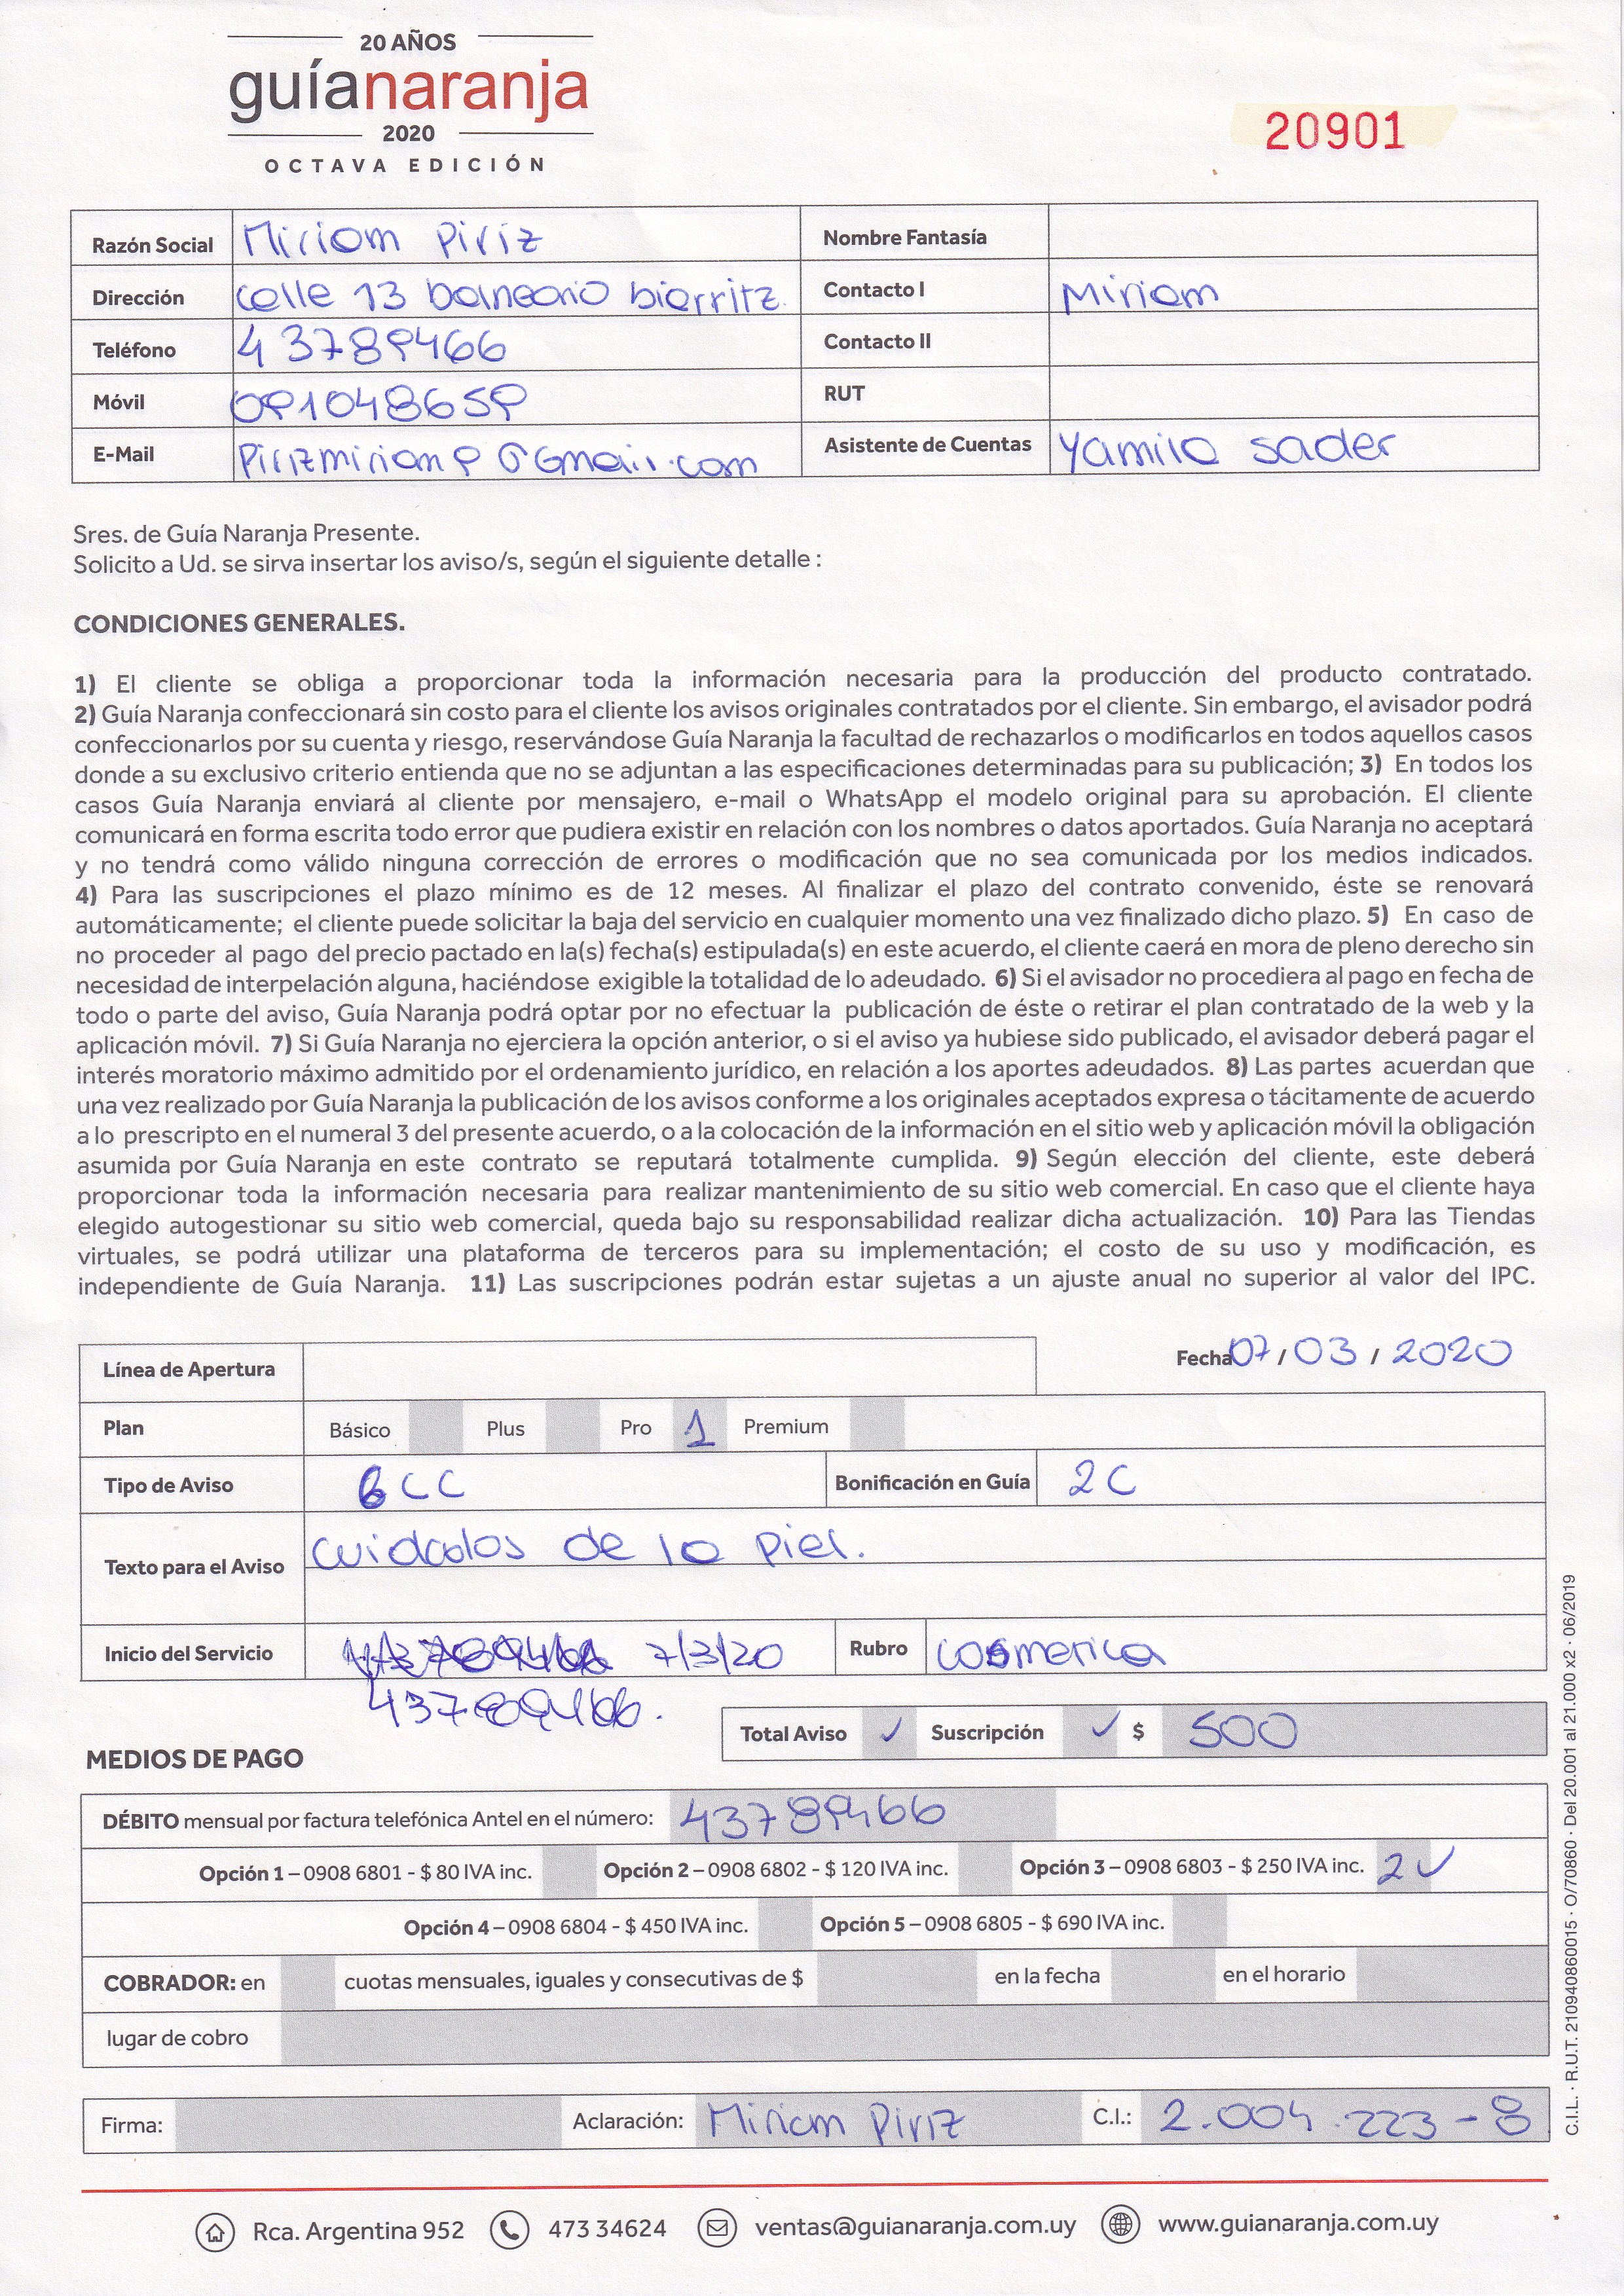 20 AÑOS
guíanaranja
2020
OCTAVA EDICIÓN
20901
Razón Social Miriam Piriz Nombre Fantasía
Dirección calle 13 balneario biarritz. Contacto I Miriam
Teléfono 43789466 Contacto II
Móvil 091048659 RUT
E-Mail Pirizmiriam9@Gmail.com Asistente de Cuentas Yamila Sader
Sres. de Guía Naranja Presente.
Solicito a Ud. se sirva insertar los aviso/s, según el siguiente detalle :
CONDICIONES GENERALES.
1) El cliente se obliga a proporcionar toda la información necesaria para la producción del producto contratado.
2) Guía Naranja confeccionará sin costo para el cliente los avisos originales contratados por el cliente. Sin embargo, el avisador podrá
confeccionarlos por su cuenta y riesgo, reservándose Guía Naranja la facultad de rechazarlos o modificarlos en todos aquellos casos
donde a su exclusivo criterio entienda que no se adjuntan a las especificaciones determinadas para su publicación; 3) En todos los
casos Guía Naranja enviará al cliente por mensajero, e-mail o WhatsApp el modelo original para su aprobación. El cliente
comunicará en forma escrita todo error que pudiera existir en relación con los nombres o datos aportados. Guía Naranja no aceptará
y no tendrá como válido ninguna corrección de errores o modificación que no sea comunicada por los medios indicados.
4) Para las suscripciones el plazo mínimo es de 12 meses. Al finalizar el plazo del contrato convenido, éste se renovará
automáticamente; el cliente puede solicitar la baja del servicio en cualquier momento una vez finalizado dicho plazo. 5) En caso de
no proceder al pago del precio pactado en la(s) fecha(s) estipulada(s) en este acuerdo, el cliente caerá en mora de pleno derecho sin
necesidad de interpelación alguna, haciéndose exigible la totalidad de lo adeudado. 6) Si el avisador no procediera al pago en fecha de
todo o parte del aviso, Guía Naranja podrá optar por no efectuar la publicación de éste o retirar el plan contratado de la web y la
aplicación móvil. 7) Si Guía Naranja no ejerciera la opción anterior, o si el aviso ya hubiese sido publicado, el avisador deberá pagar el
interés moratorio máximo admitido por el ordenamiento jurídico, en relación a los aportes adeudados. 8) Las partes acuerdan que
una vez realizado por Guía Naranja la publicación de los avisos conforme a los originales aceptados expresa o tácitamente de acuerdo
a lo prescripto en el numeral 3 del presente acuerdo, o a la colocación de la información en el sitio web y aplicación móvil la obligación
asumida por Guía Naranja en este contrato se reputará totalmente cumplida. 9) Según elección del cliente, este deberá
proporcionar toda la información necesaria para realizar mantenimiento de su sitio web comercial. En caso que el cliente haya
elegido autogestionar su sitio web comercial, queda bajo su responsabilidad realizar dicha actualización. 10) Para las Tiendas
virtuales, se podrá utilizar una plataforma de terceros para su implementación; el costo de su uso y modificación, es
independiente de Guía Naranja. 11) Las suscripciones podrán estar sujetas a un ajuste anual no superior al valor del IPC.
Línea de Apertura Fecha 07 / 03 / 2020
Plan Básico Plus Pro 1 Premium
Tipo de Aviso 6CC Bonificación en Guía 2C
Texto para el Aviso cuidados de la piel.
Inicio del Servicio 7/3/20 Rubro cosmetica
43789466.
Total Aviso ✓ Suscripción ✓ $ 500
MEDIOS DE PAGO
DÉBITO mensual por factura telefónica Antel en el número: 43789466
Opción 1 – 0908 6801 - $ 80 IVA inc. Opción 2 – 0908 6802 - $ 120 IVA inc. Opción 3 – 0908 6803 - $ 250 IVA inc. 2 ✓
Opción 4 – 0908 6804 - $ 450 IVA inc. Opción 5 – 0908 6805 - $ 690 IVA inc.
COBRADOR: en cuotas mensuales, iguales y consecutivas de $ en la fecha en el horario
lugar de cobro
Firma: Aclaración: Miriam Piriz C.I.: 2.004.223-8
Rca. Argentina 952 473 34624 ventas@guianaranja.com.uy www.guianaranja.com.uy
C.I.L. · R.U.T. 210940860015 · O/70860 · Del 20.001 al 21.000 x2 · 06/2019